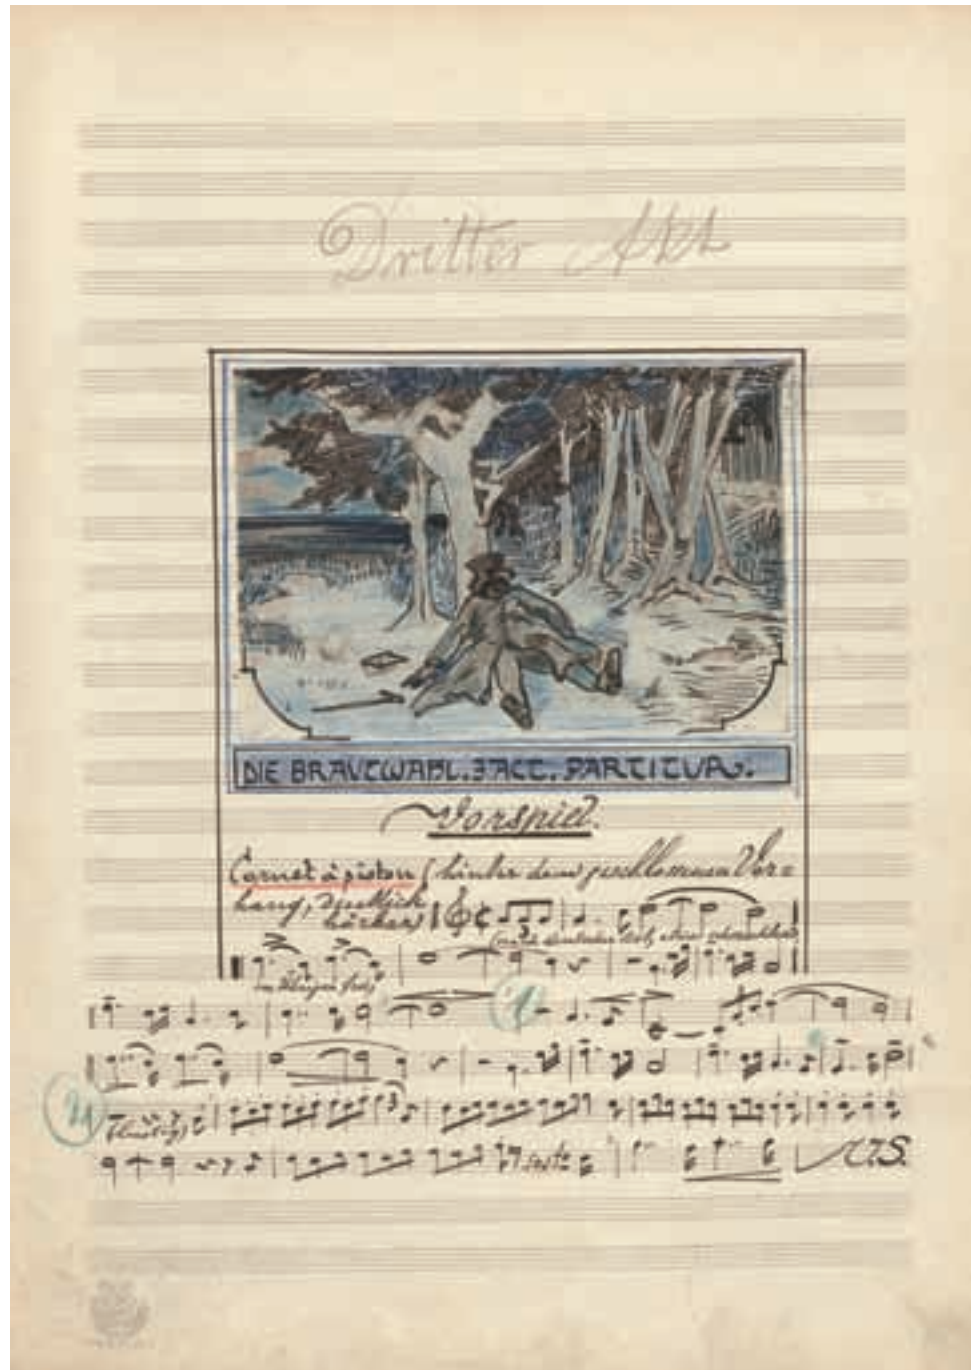 Dritter Akt
DIE BRAUTWAHL. 3 ACT. PARTITUR.
Vorspiel.
Cornet à piston (hinter dem geschlossenen Vor=
hang, deutlich
hörbar)
3
1
2
(lustig)
3
V.S.